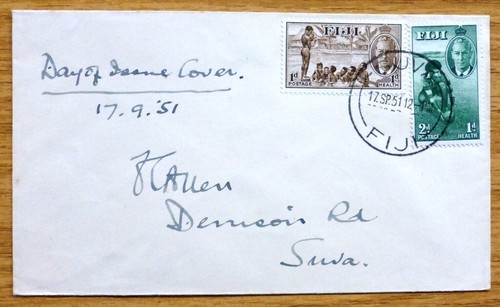 Day of Issue Cover.
17.9.'51
FIJI
1d 1d
POSTAGE HEALTH
FIJI
2d 1d
POSTAGE HEALTH
17.SP.51 12
FIJI
Allen
Denison Rd
Suva.